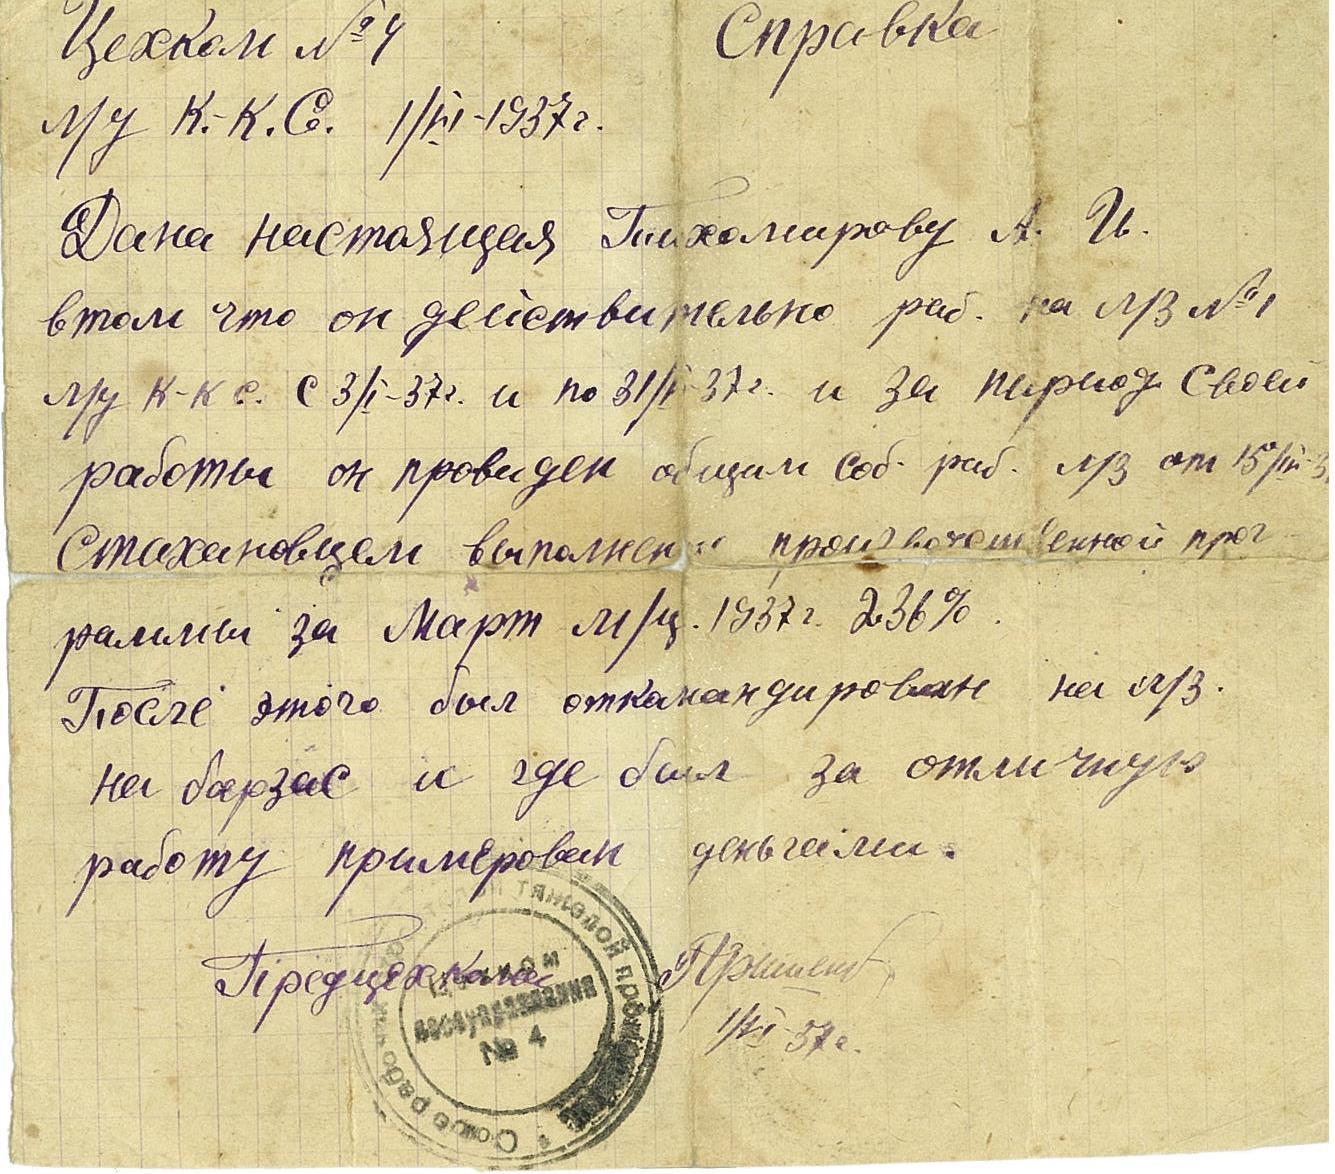 Цехком №4 Справка
л/у К.-К.С. 1/VII-1937г.
Дана настоящая Тихомирову А. И.
втом что он действительно раб. на л/з №1
л/у К-КС. с 3/I-37г. и по 31/ 37г. и за период своей
работы он провиден общим соб. раб. л/з от 15/III-3
Стахановцем выполнен производственной прог
раммы за Март м/ц. 1937г. 236%.
После этого был откамандирован на л/з.
на барзас и где был за отличную
работу примерован деньгами.
Предцехкома
37г.
Союз рабо тяжелой
Цехком
лесоуправления
№ 4